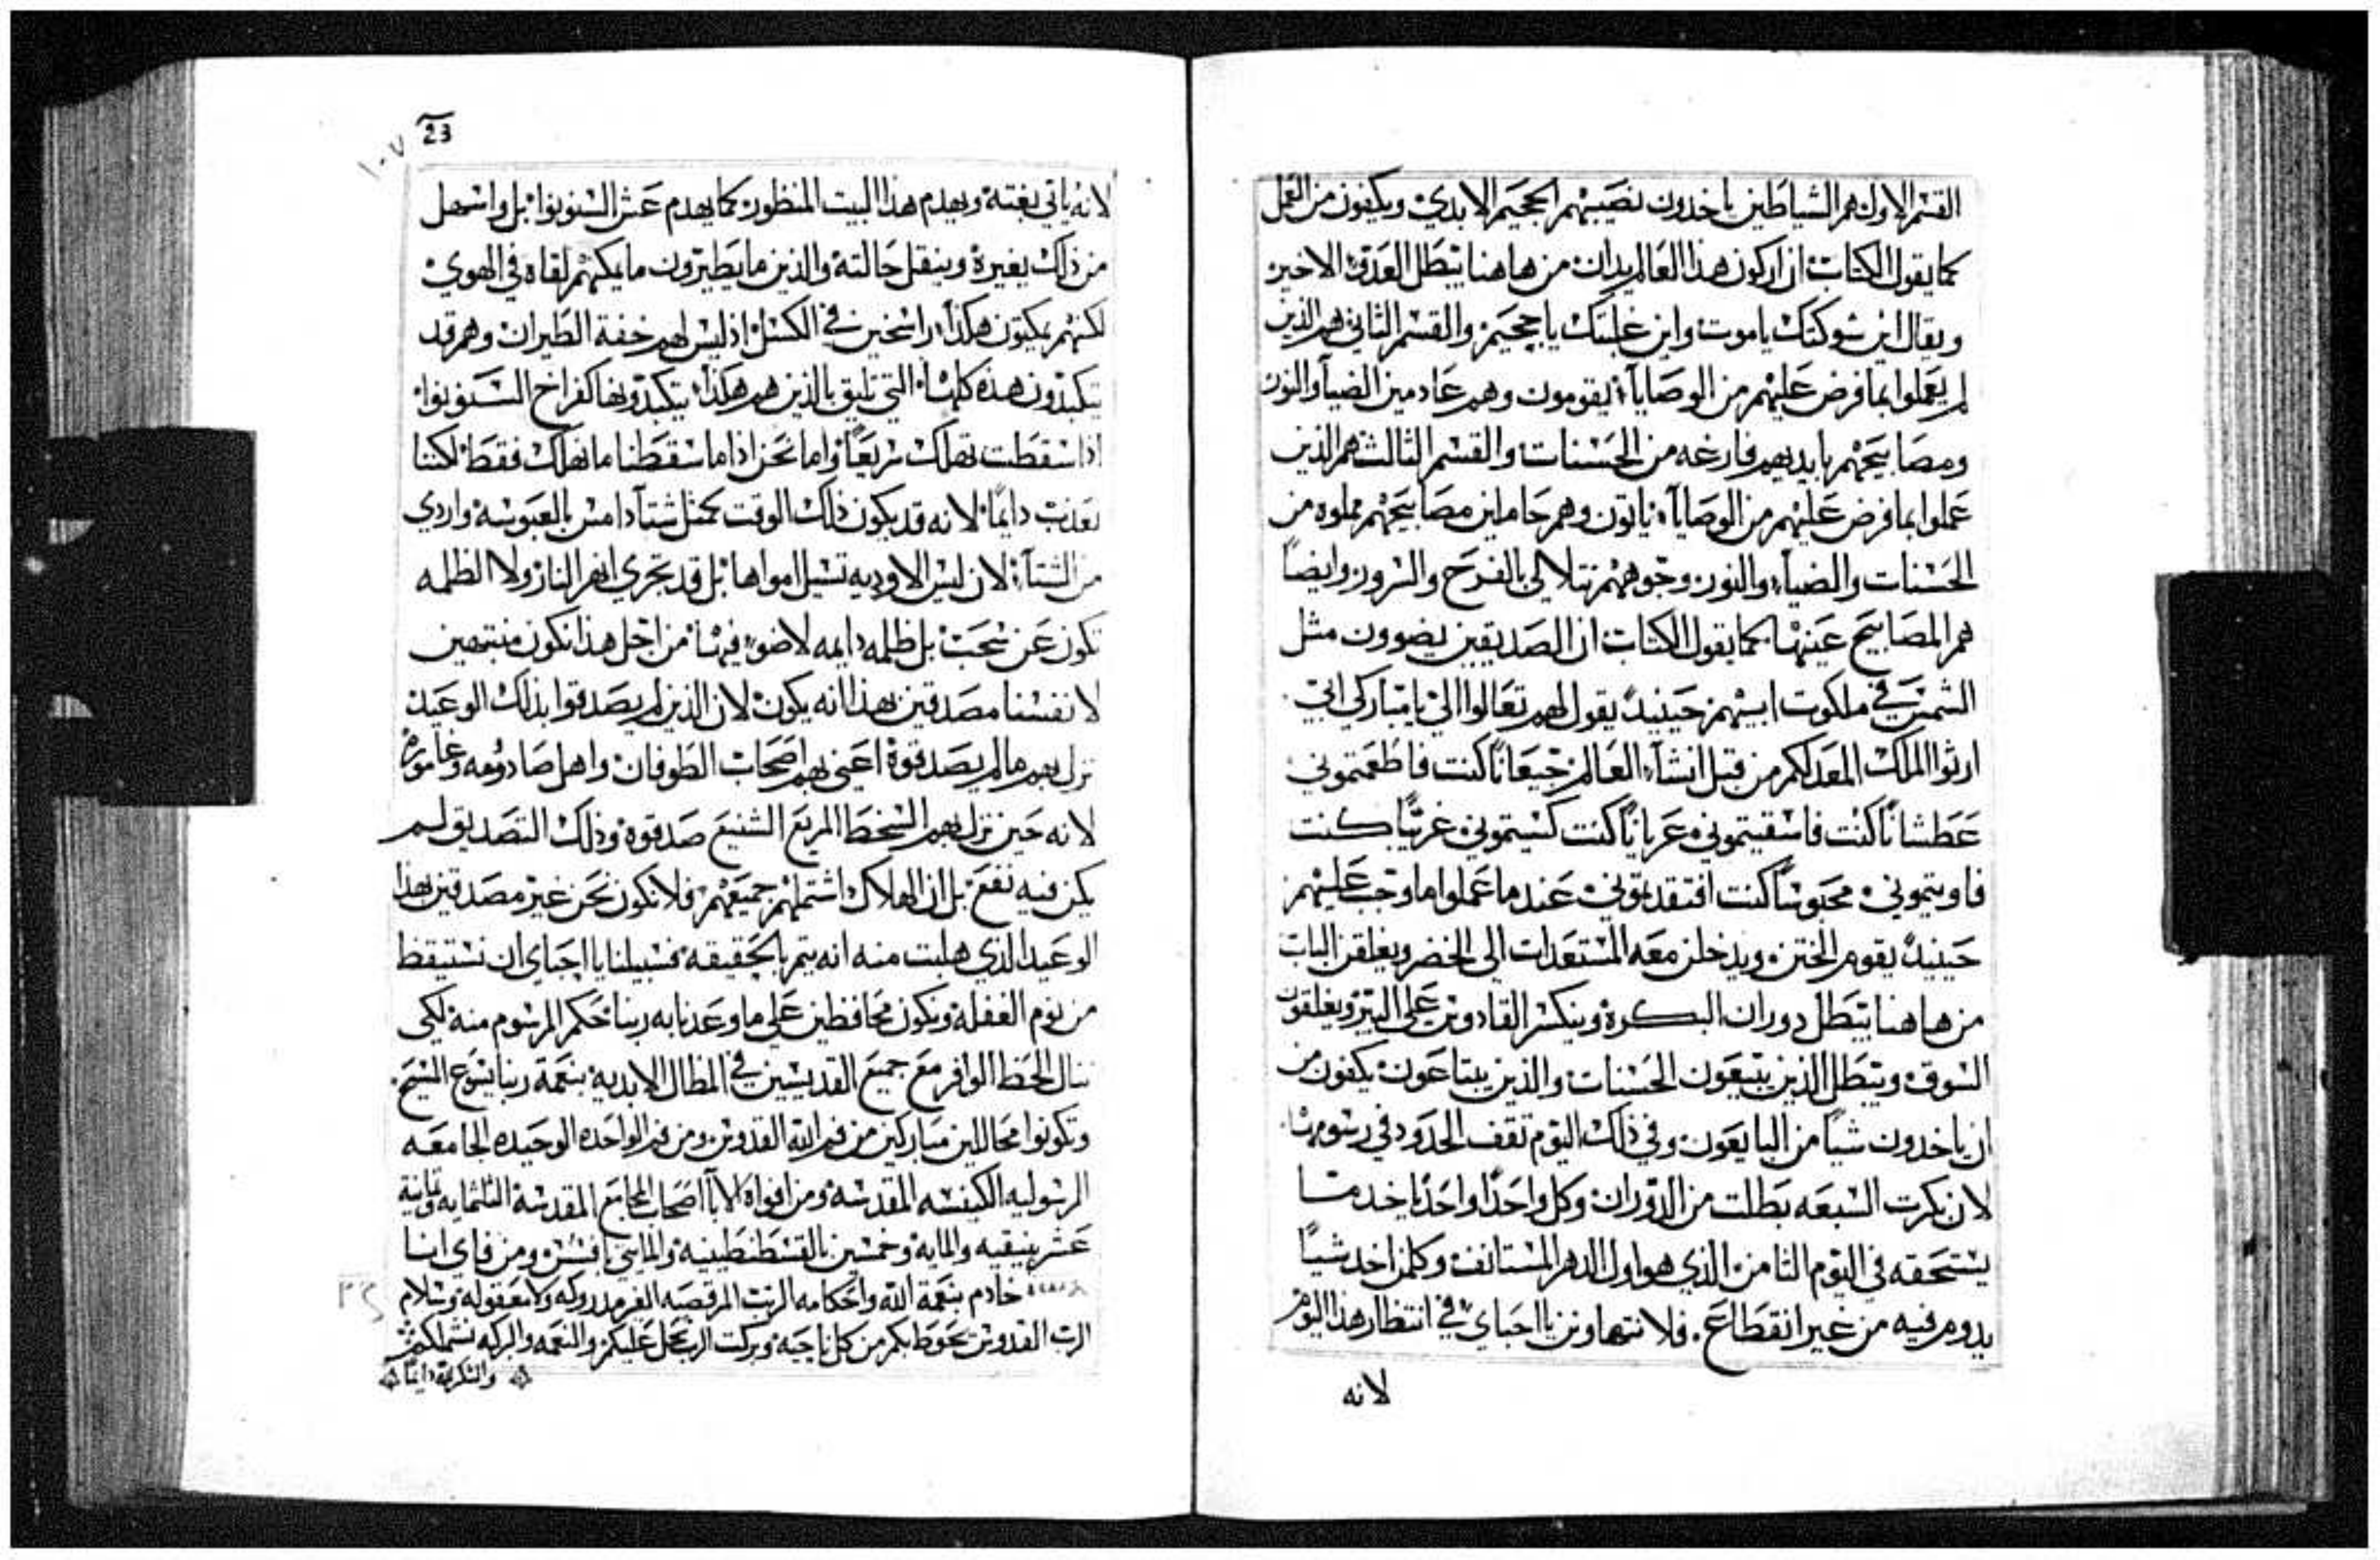 القسم الاول هم الشياطين ياخدون نصيبهم الجحيم الابدي ويكفون من العمل
كما يقول الكتاب ان اركون هذا العالم يدان من هاهنا يتبطل العدو الاخير
ويقال اين شوكتك ياموت واين غلبتك ياججيم والقسم الثاني هم الذين
لم يعملوا بما فرض عليهم من الوصايا يقومون وهم عادمين الضيآ والنور
ومصابيحهم بايديهم فارغه من الحسنات والقسم الثالث هم الذين
عملوا بما فرض عليهم من الوصايا ياتون وهم حاملين مصابيحهم مملوه من
الحسنات والضيآ والنور وجوههم تتلالي بالفرح والسرور وايضاً
هم المصابيح عينها كما يقول الكتاب ان الصديقين يضوون مثل
الشمس في ملكوت ابيهم حينيدٍ يقول لهم تعالوا الي يا مباركي ابي
ارثوا الملك المعد لكم من قبل انشآ العالم جيعاناً كنت فاطعمتموني
عطشاناً كنت فاسقيتموني عرياناً كنت كسيتموني غريباً كنت
فاويتموني محبوساً كنت افتقدتموني عندما عملوا ما وجب عليهم
حينيدٍ يقوم الختن ويدخلن معه المستعدات الى الخضر ويغلقن الباب
من هاهنا يتبطل دوران البكرة وينكسر القادوس على البير ويغلقون
السوق ويتبطل الذين يتبيعون الحسنات والذين يبتاعون يكفون من
ان ياخدون شياً من البايعون وفي ذلك اليوم تقف الحدود في رسومها
لان بكرت السبعه بطلت من الدوران وكل واحداً واحداً ياخد ما
يستحقه في اليوم الثامن الذي هو اول الدهر المستانف وكلمن اخد شياً
يدوم فيه من غير انقطاع. فلا نتهاونن يا احباي في انتظار هذا اليوم
لانه
23
١٠٧
لانه ياتي بغتة ويهدم هذا البيت المنظور كما يهدم عش السنونوا بل واسهل
من ذلك بغيرة وينقل حالته والذين ما يطيرون ما يمكنهم لقاه في الهوي
لكنهم يمكتون هكذا راسخين في الكسل اذ ليس لهم خفة الطيران وهم قد
يتكبدون هذه كلها التي تليق بالذين هم هكذا يتكبدونها كفراخ السنونوا
اذا سقطت تهلك سريعاً واما نحن اذا ما سقطنا ما نهلك فقط لكننا
نعذب دايماً لانه قد يكون ذلك الوقت كمثل شتآ دامس بالعبوسة واردي
من الشتآ لان ليس الاوديه تسيل امواها بل قد تجري انهر النار ولا الظلمه
تكون عن سحب بل ظلمه دايمه لاضو فيها من اجل هذا نكون منبتهين
لانفسنا مصدقين بهذا انه يكون لان الذين لم يصدقوا بذلك الوعيد
نزل بهم ما لم يصدقوة اعني بهم اصحاب الطوفان واهل صادومه وغاموره
لانه حين نزل بهم السخط المريع الشنيع صدقوة وذلك التصديق لم
يكن فيه نفع بل ان الهلاك اشتملهم جميعهم فلا نكون نحن غير مصدقين بهذا
الوعيد الذي هلبت منه انه يتم بالحقيقه فسبيلنا يا احباي ان نستيقظ
من نوم الغفله ونكون محافظين على ما وعدنا به ربنا حكم المرسوم منه لكي
ننال الحظ الوافر مع جميع القديسين في المظال الابدية بنعمة ربنا يسوع المسيح
وتكونوا محاللين مباركين من فم الله القدوس ومن فم الواحده الوحيده الجامعه
الرسوليه الكنيسه المقدسه ومن افواه الابآ اصحاب المجامع المقدسة الثلثمايه وتمانية
عشر بنيقيه والمايه وخمسين بالقسطنطينيه والمايتي بافسس ومن فاي انا
خادم بنعمة الله واحكامه الغير مدروكه ولا معقوله وسلام
الرب القدوس يحوط بكم من كل ناحيه وبركت الرب تحل عليكم والنعمه والبركه تشملكم
والشكر لله دايماً